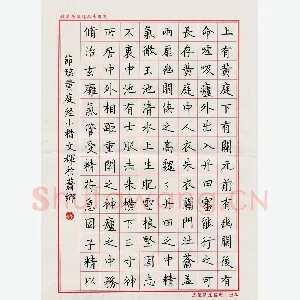 上有黄庭下有關元前有幽闕後有
命噓吸廬外出入丹田審能行之可
長生黄庭中人衣朱衣關門壯籥蓋
兩扉幽闕俠之高魏魏丹田之中精
氣微玉池清水上生肥靈根堅固志
不衰中池有士服赤朱横下三寸神
所居中外相距重閉之神廬之中務
脩治玄廱氣管受精符急固子精以
節臨黄庭經小楷文輝於